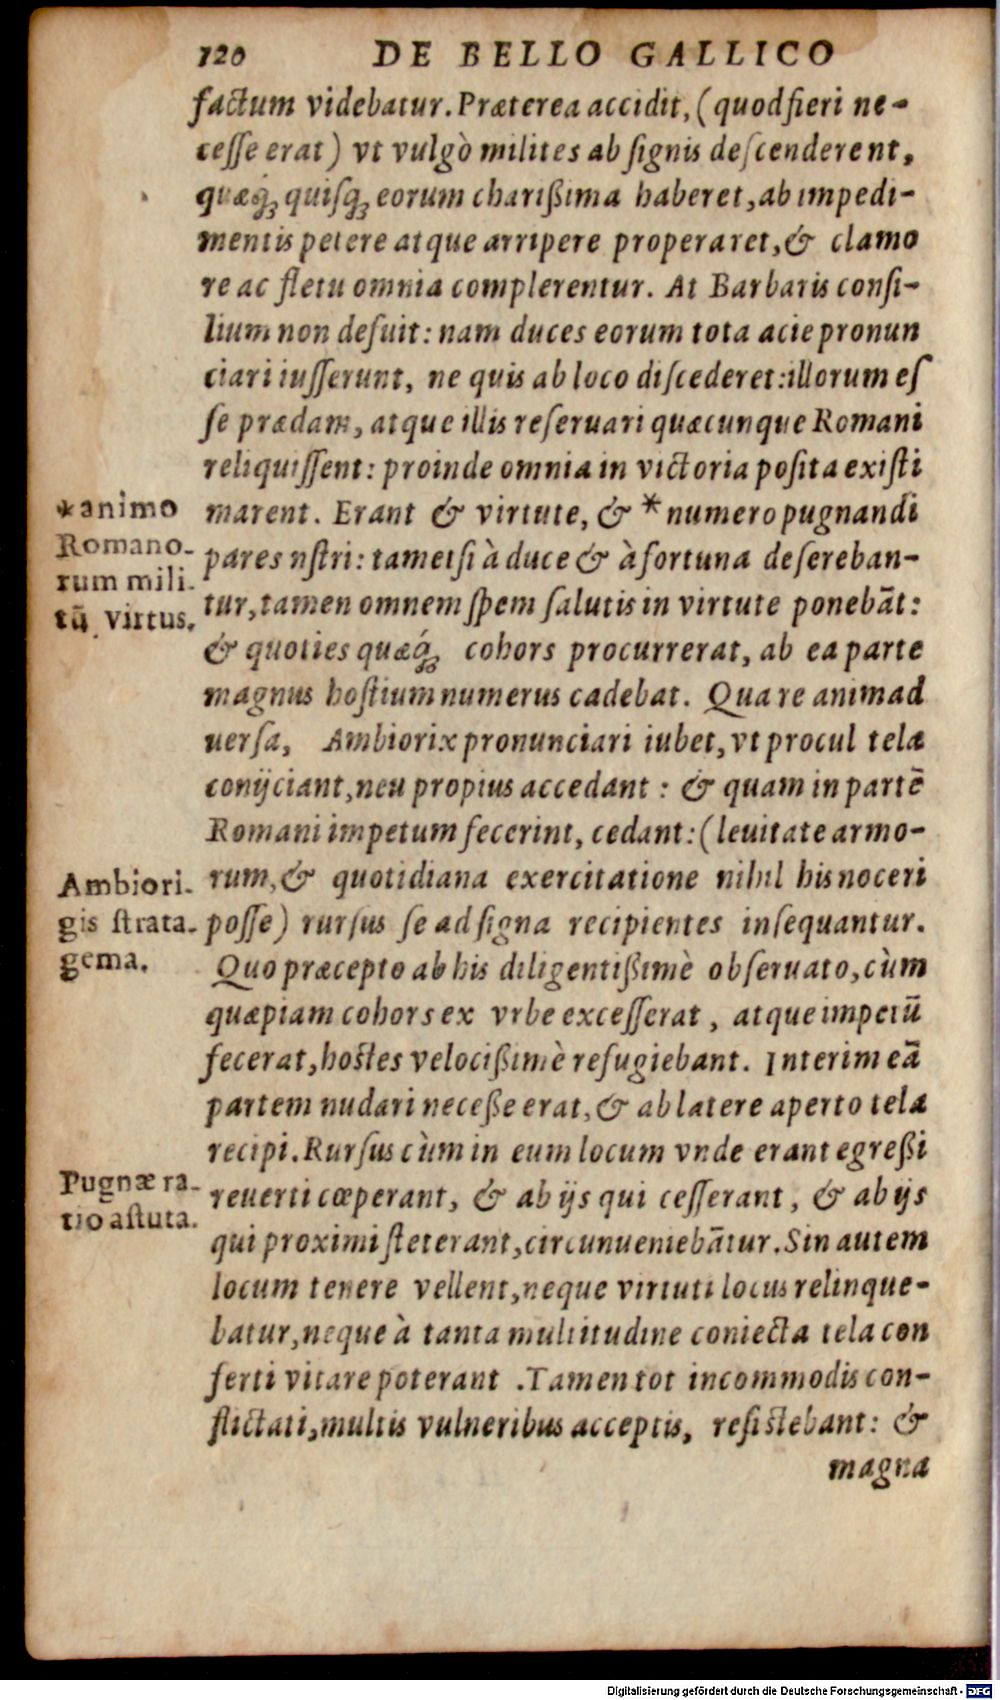 120 DE BELLO GALLICO
factum videbatur. Præterea accidit, (quod fieri ne-
cesse erat) vt vulgò milites ab signis descenderent,
quæq́ꝫ quisqꝫ eorum charißima haberet, ab impedi-
mentis petere atque arripere properaret, & clamo
re ac fletu omnia complerentur. At Barbaris consi-
lium non defuit: nam duces eorum tota acie pronun
ciari iusserunt, ne quis ab loco discederet: illorum es
se prædam, atque illis reseruari quæcunque Romani
reliquissent: proinde omnia in victoria posita existi
marent. Erant & virtute, & * numero pugnandi
pares nstri: tametsi à duce & à fortuna desereban-
tur, tamen omnem spem salutis in virtute ponebāt:
& quoties quæq́ꝫ cohors procurrerat, ab ea parte
magnus hostium numerus cadebat. Qua re animad
uersa, Ambiorix pronunciari iubet, vt procul tela
conijciant, neu propius accedant: & quam in partē
Romani impetum fecerint, cedant: (leuitate armo-
rum, & quotidiana exercitatione nihil his noceri
posse) rursus se ad signa recipientes insequantur.
Quo præcepto ab his diligentißimè obseruato, cùm
quæpiam cohors ex vrbe excesserat, atque impetū
fecerat, hostes velocißimè refugiebant. Interim eā
partem nudari neceße erat, & ab latere aperto tela
recipi. Rursus cùm in eum locum vnde erant egreßi
reuerti cœperant, & ab ijs qui cesserant, & ab ijs
qui proximi steterant, circunueniebātur. Sin autem
locum tenere vellent, neque virtuti locus relinque-
batur, neque à tanta multitudine coniecta tela con
ferti vitare poterant. Tamen tot incommodis con-
flictati, multis vulneribus acceptis, resistebant: &
magna
*animo
Romano-
rum mili-
tū virtus.
Ambiori-
gis strata-
gema.
Pugnæ ra-
tio astuta.
Digitalisierung gefördert durch die Deutsche Forschungsgemeinschaft - DFG